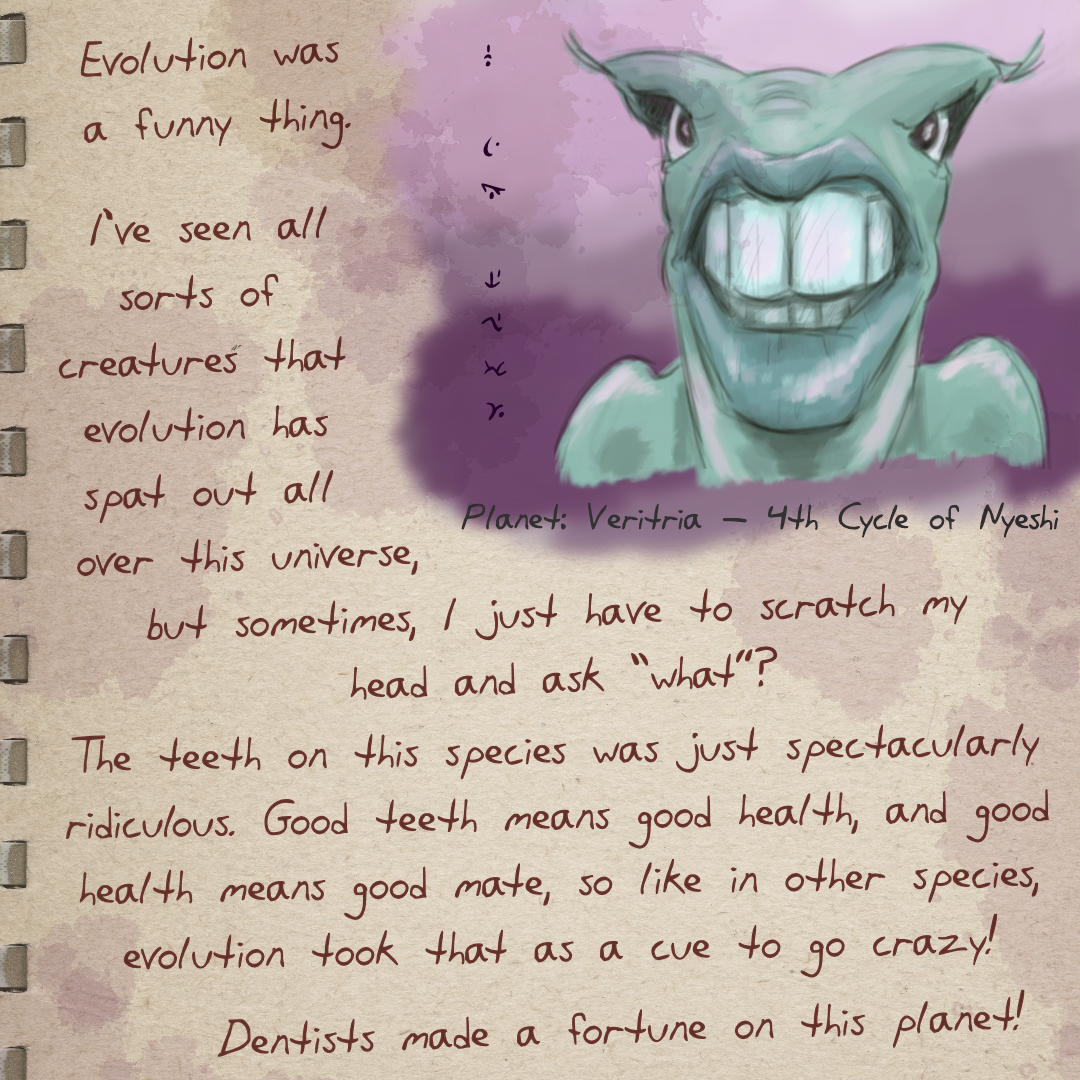 Evolution was
a funny thing.
I've seen all
sorts of
creatures that
evolution has
spat out all
over this universe,
but sometimes, I just have to scratch my
head and ask "what"?
Planet: Veritria — 4th Cycle of Nyeshi
The teeth on this species was just spectacularly
ridiculous. Good teeth means good health, and good
health means good mate, so like in other species,
evolution took that as a cue to go crazy!
Dentists made a fortune on this planet!